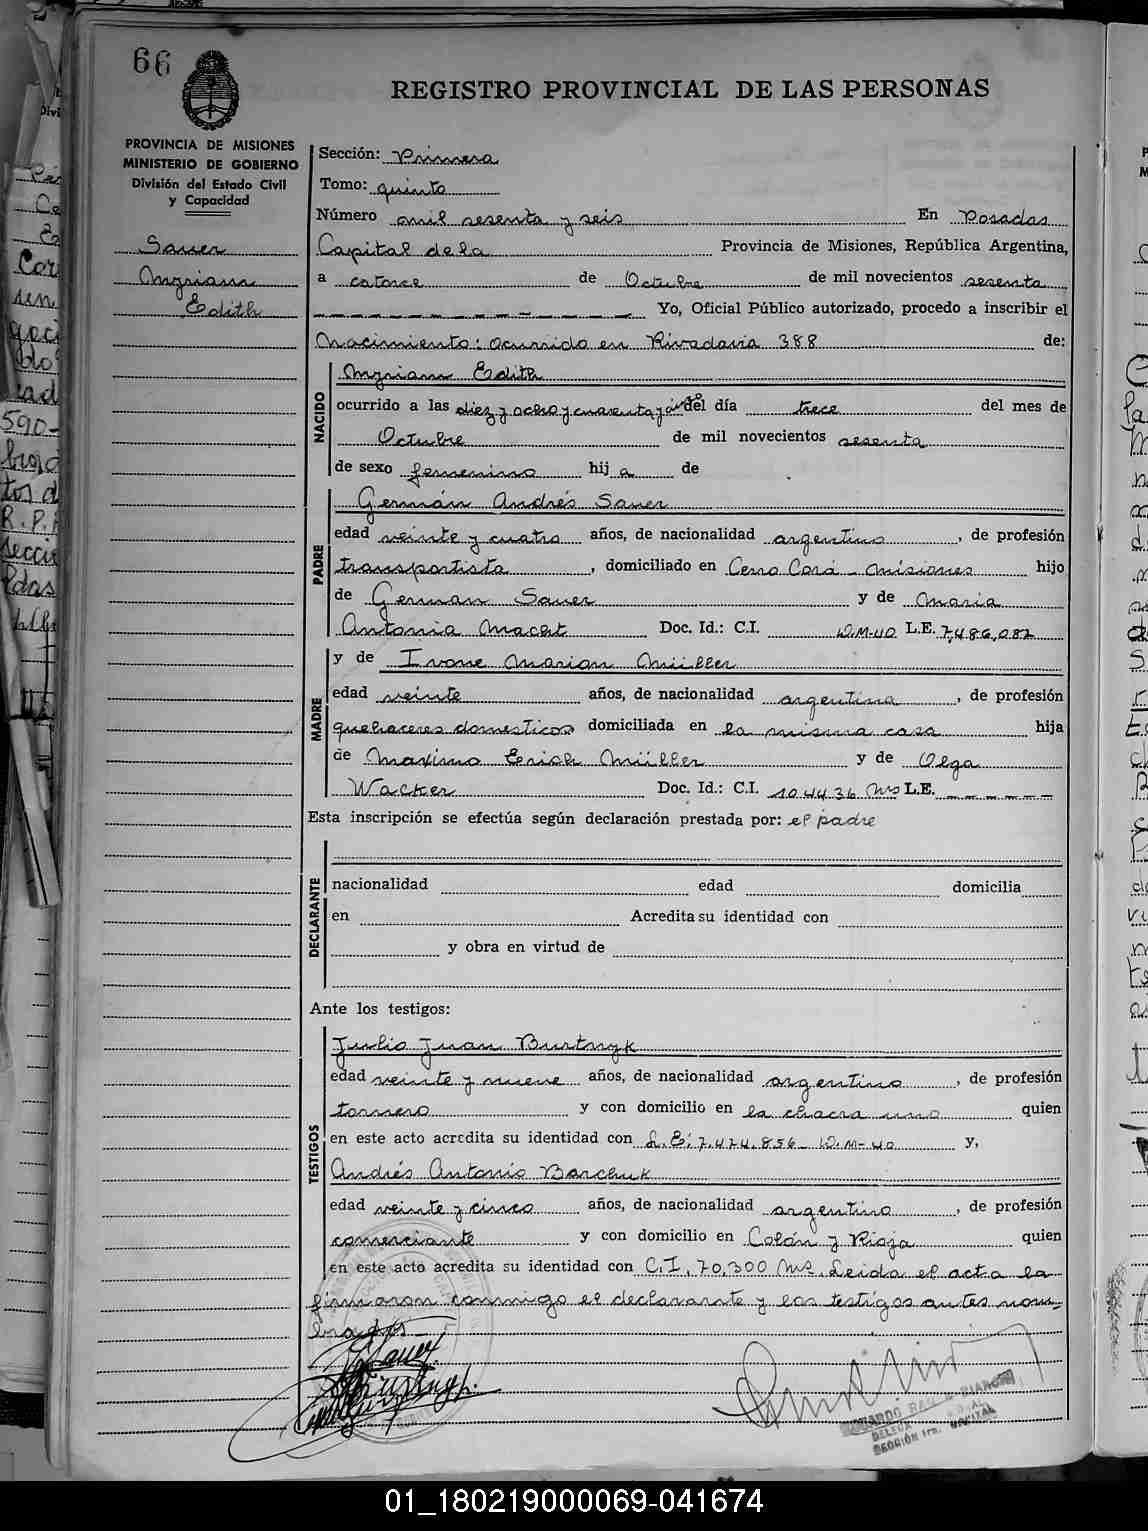 66
REGISTRO PROVINCIAL DE LAS PERSONAS
PROVINCIA DE MISIONES
MINISTERIO DE GOBIERNO
División del Estado Civil
y Capacidad
Sauer
Myriam
Edith
Sección: Primera
Tomo: quinto
Número mil sesenta y seis En Posadas
Capital de la Provincia de Misiones, República Argentina,
a catorce de Octubre de mil novecientos sesenta
Yo, Oficial Público autorizado, procedo a inscribir el
Nacimiento: ocurrido en Rivadavia 388 de:
NACIDO
Myriam Edith
ocurrido a las diez y ocho y cuarenta y cinco del día trece del mes de
Octubre de mil novecientos sesenta
de sexo femenino hij a de
PADRE
Germán Andrés Sauer
edad veinte y cuatro años, de nacionalidad argentino, de profesión
transportista, domiciliado en Cerro Corá - Misiones hijo
de German Sauer y de Maria
Antonia Macht Doc. Id.: C.I. D.M-40 L.E. 7,486,082
MADRE
y de Ivone Marian Müller
edad veinte años, de nacionalidad argentina, de profesión
quehaceres domesticos domiciliada en la misma casa hija
de Maximo Erich Müller y de Olga
Wacker Doc. Id.: C.I. 104436 Mns L.E.
Esta inscripción se efectúa según declaración prestada por: el padre
DECLARANTE
nacionalidad edad domicilia
en Acredita su identidad con
y obra en virtud de
Ante los testigos:
TESTIGOS
Julio Juan Burtnyk
edad veinte y nueve años, de nacionalidad argentino, de profesión
tornero y con domicilio en la chacra uno quien
en este acto acredita su identidad con L.E: 7.474.856 - D.M-40 y,
Andrés Antonio Barchuk
edad veinte y cinco años, de nacionalidad argentino, de profesión
comerciante y con domicilio en Colón y Rioja quien
en este acto acredita su identidad con C.I. 70,300 Mns. Leida el acta la
firmaron conmigo el declarante y los testigos antes nom-
brados -
01_180219000069-041674